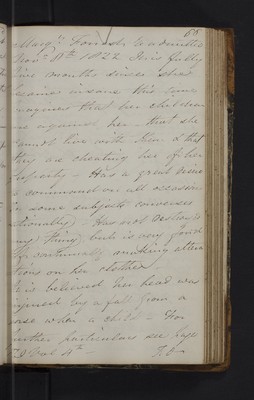 Marg.t Forrest readmitted
Nov.r 8th 1822 It is fully
nine months since she
became insane this time
imagines that her children
are against her that she
cannot live with them & that
they are cheating her of her
property – Has a great desire
to command on all occasions
on some subjects converses
rationally Has not destroyed
any thing but is very fond
of continually making altera
tions on her clothes
It is believed her head was
injured by a fall from a
horse when a child – For
further particulars see Page